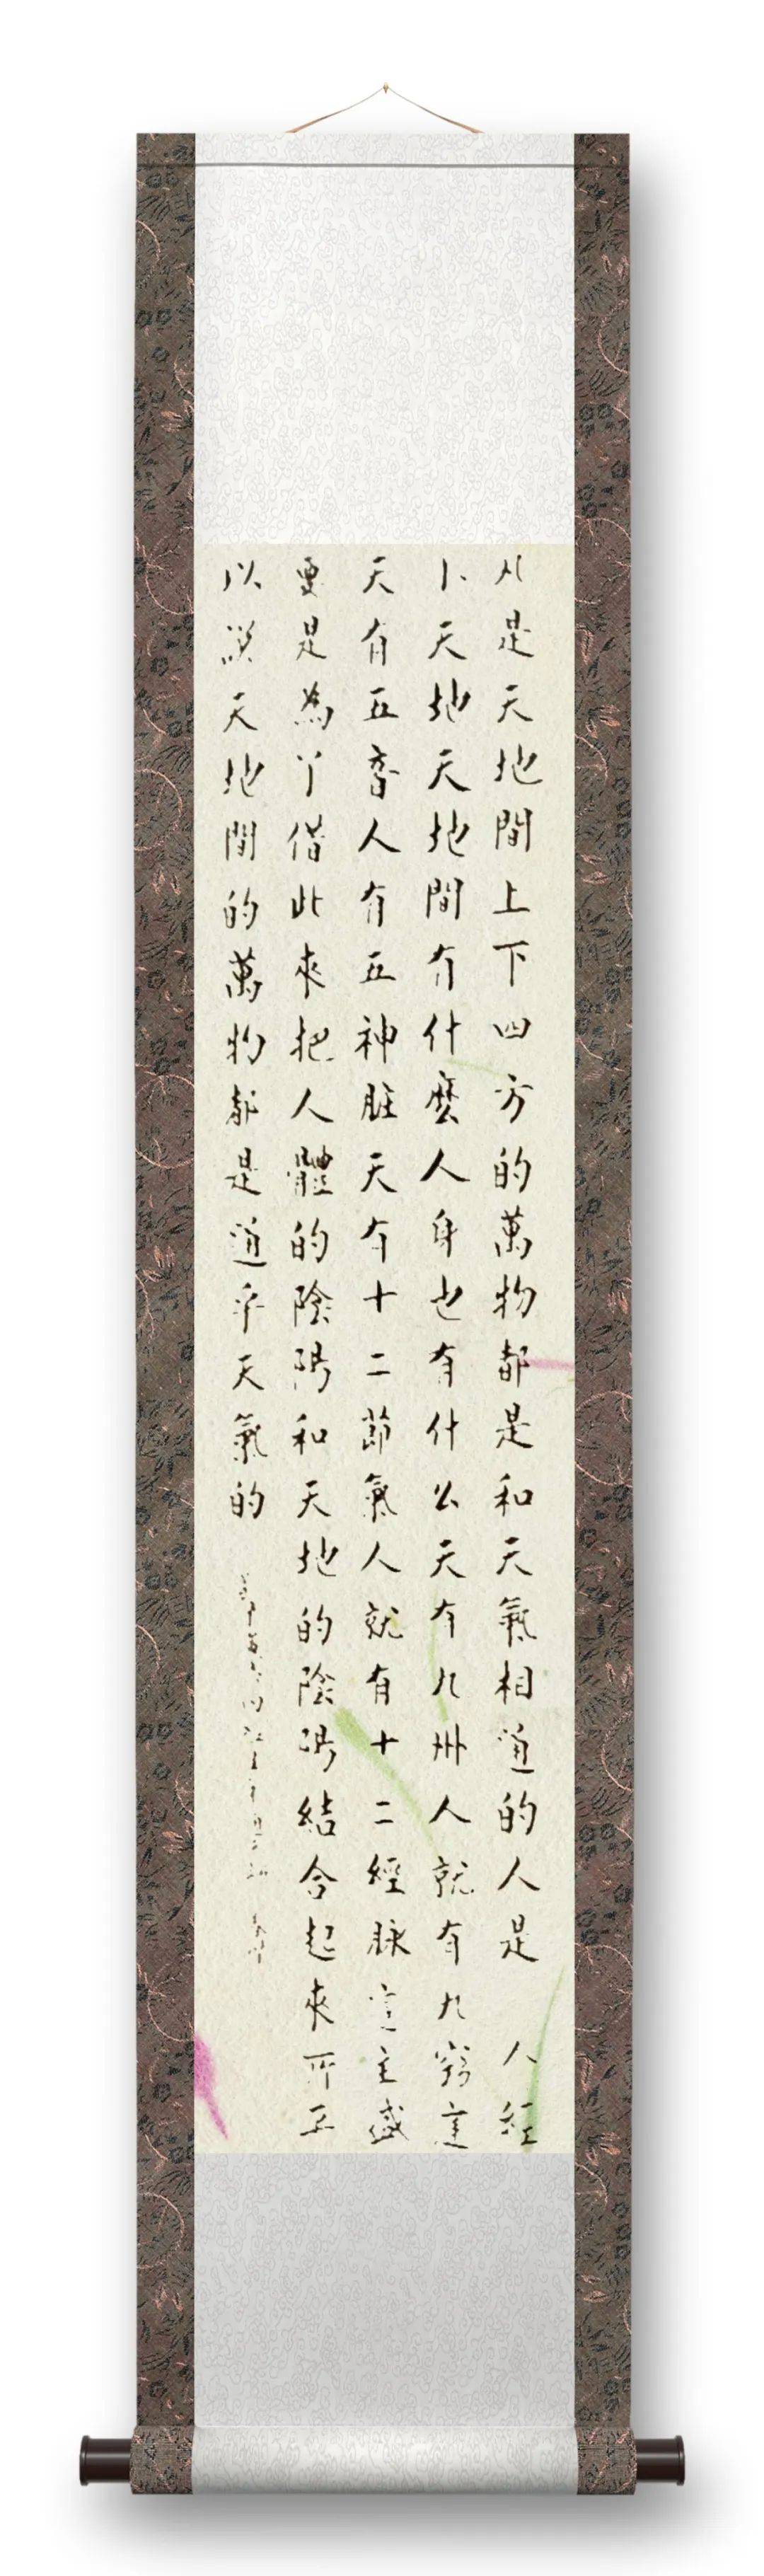 凡是天地間上下四方的萬物都是和天氣相通的人是人經
小天地天地間有什麼人身也有什么天有九州人就有九竅這
天有五音人有五神脏天有十二節氣人就有十二經脉這主盛
要是為了借此來把人體的陰陽和天地的陰陽結合起來所正
以說天地間的萬物都是通乎天氣的